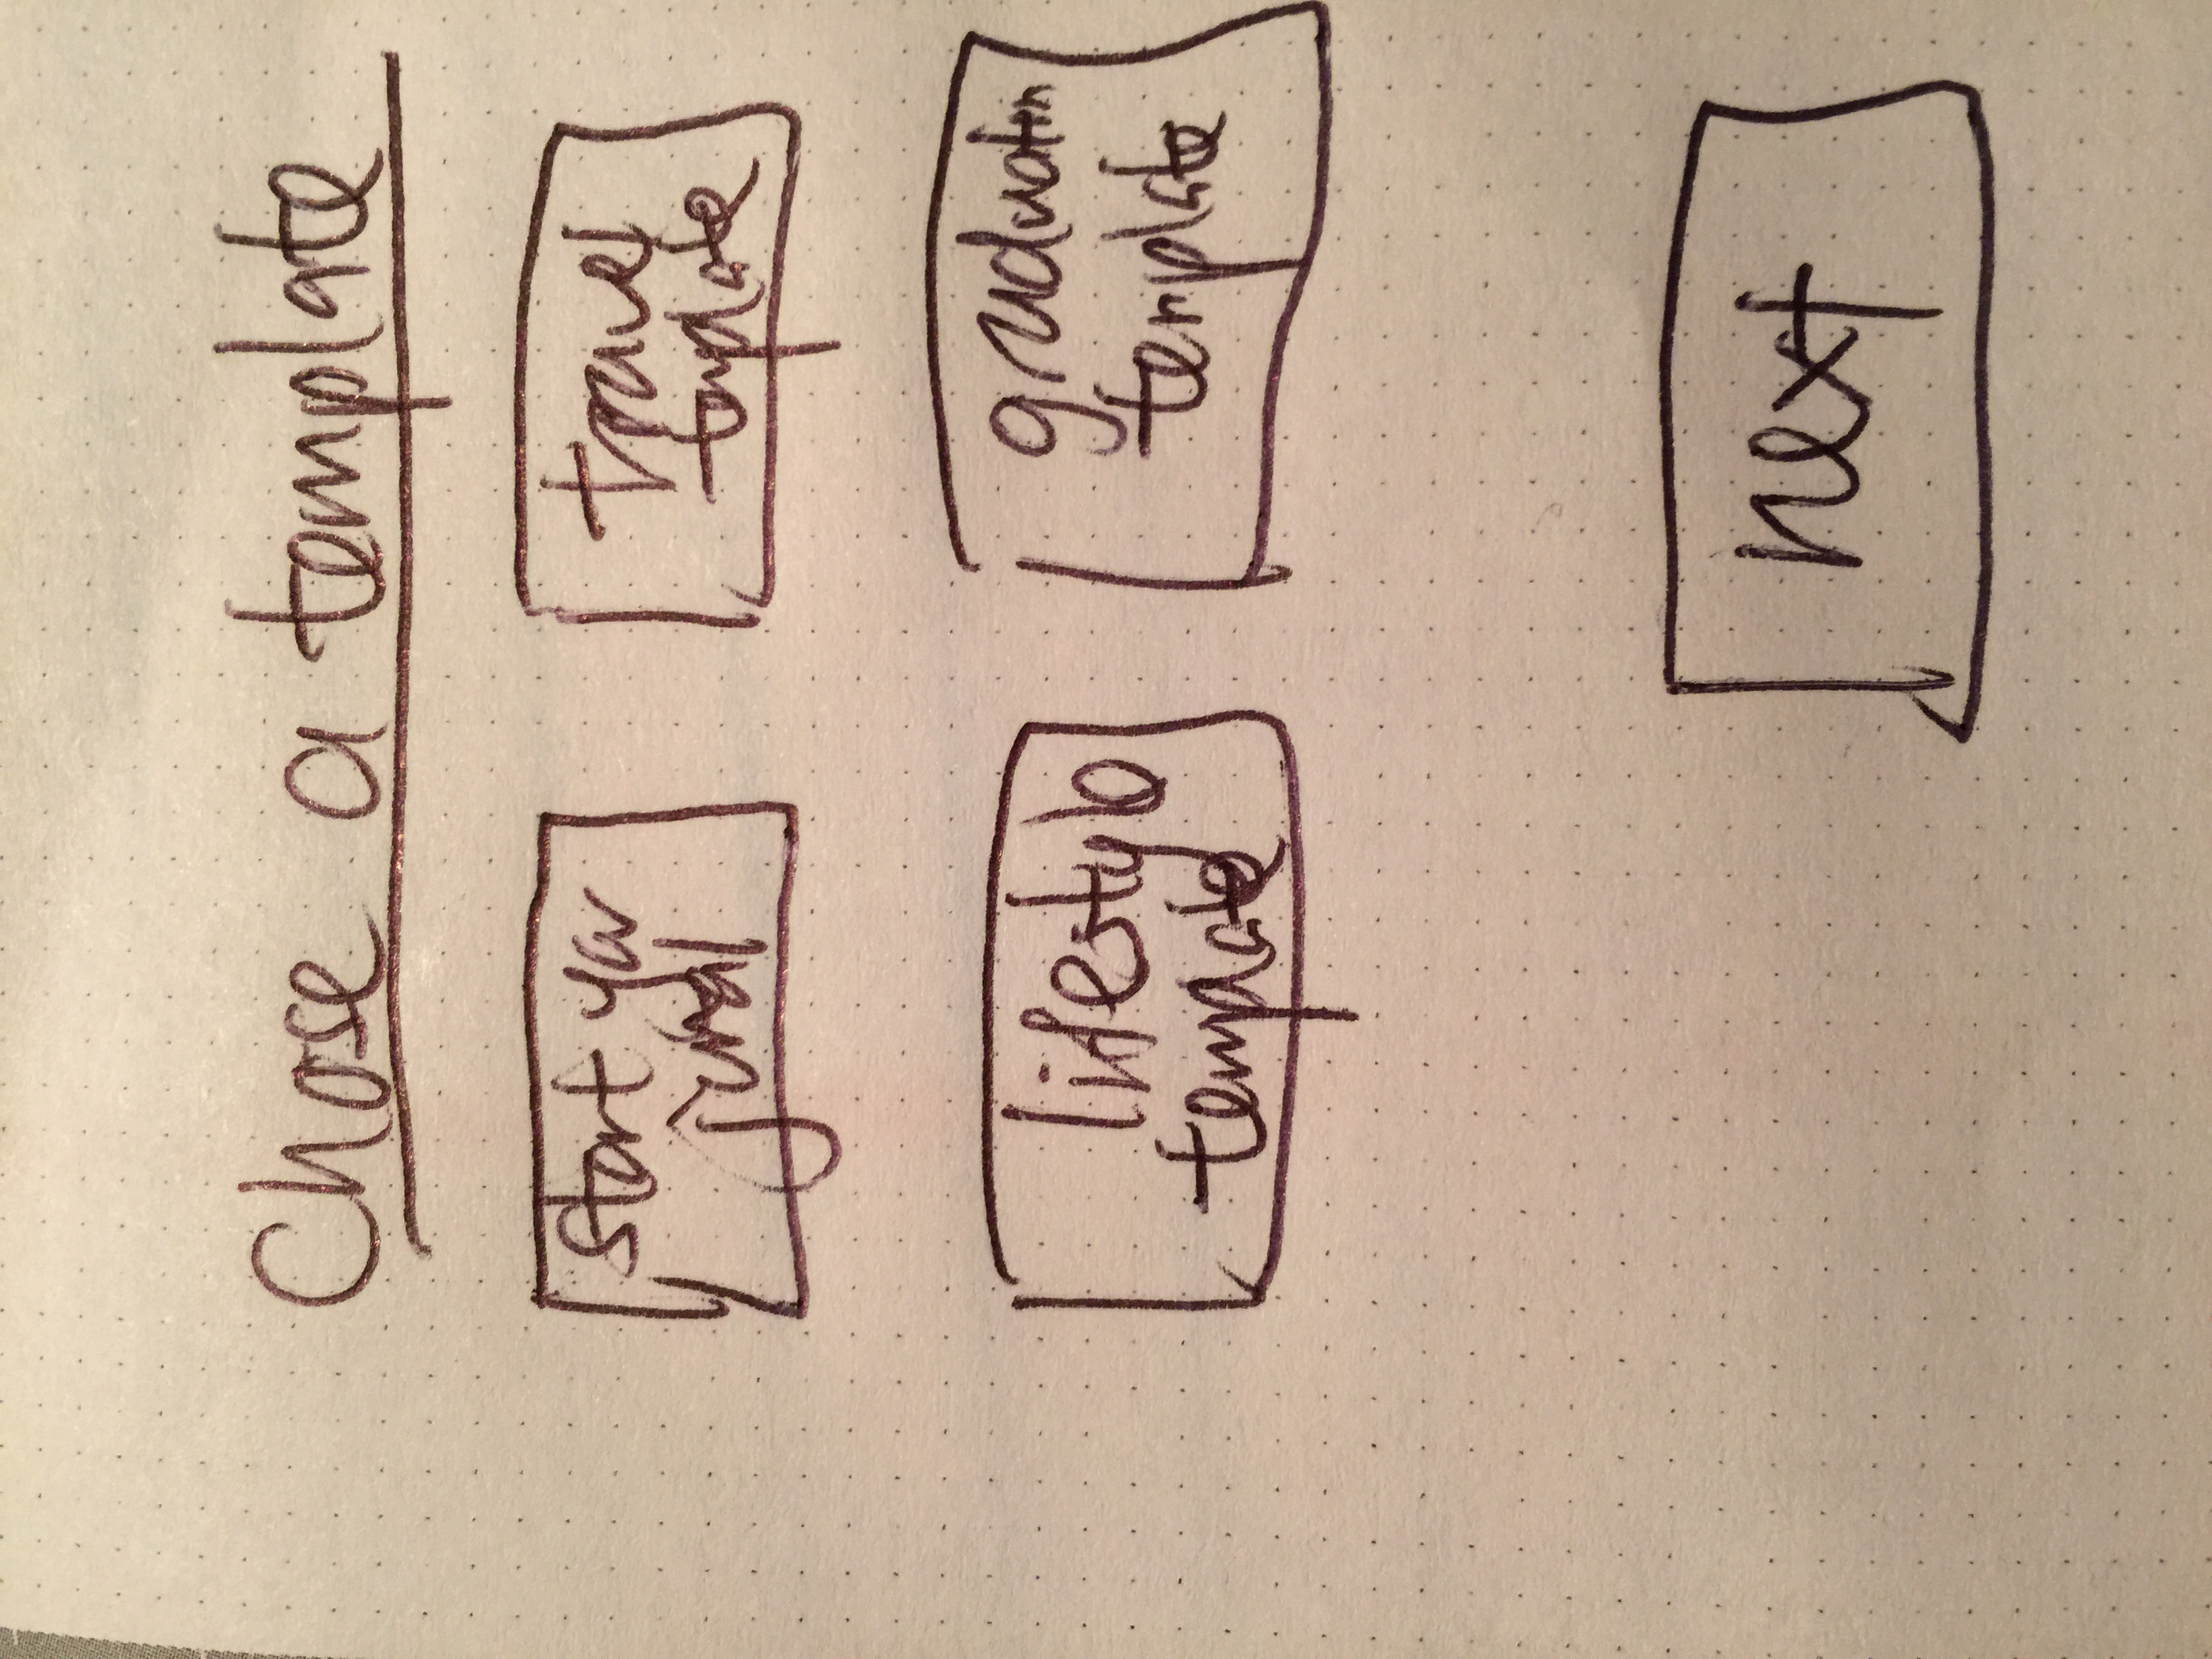 Chose a template
start your
jurnal
travel
template
lifestyle
template
graduation
template
next